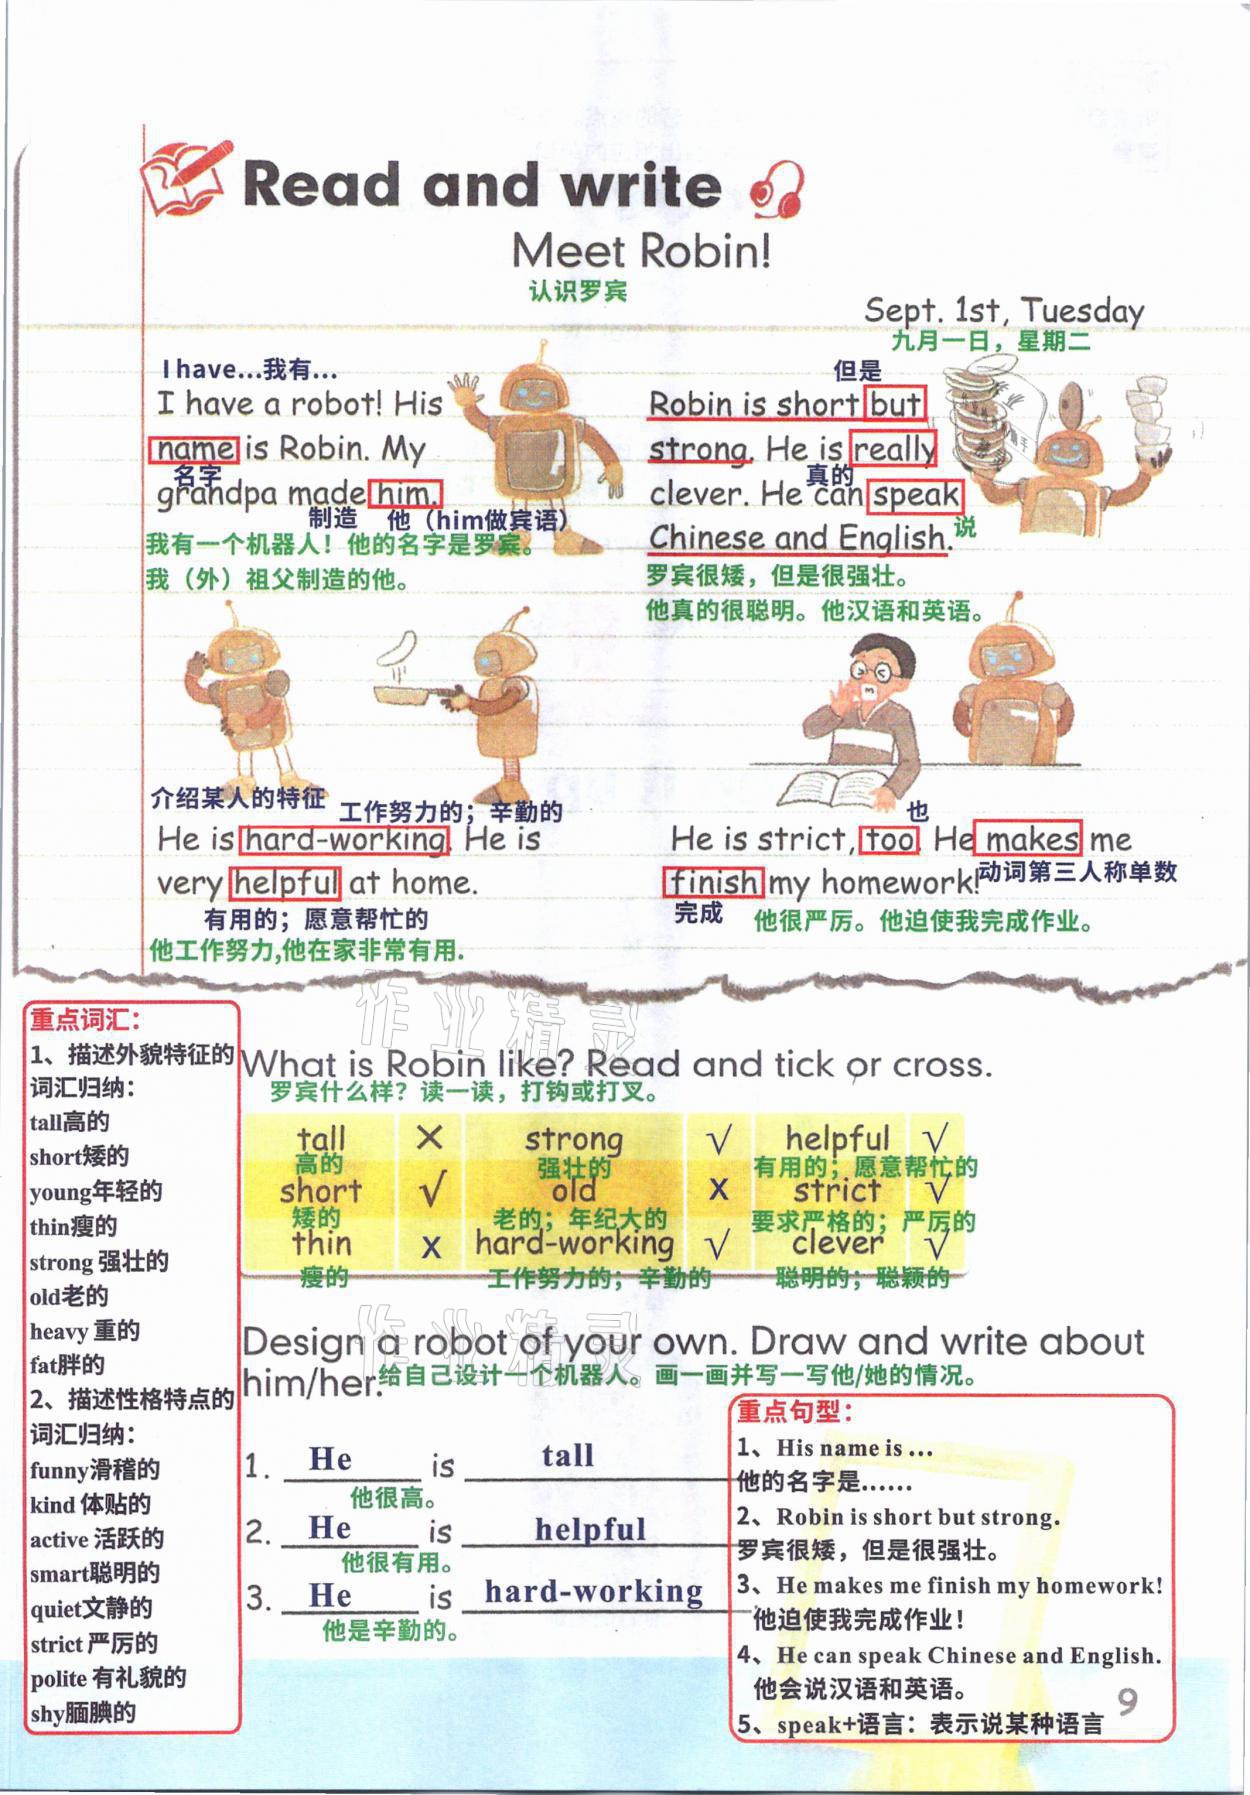 Read and write
Meet Robin!
认识罗宾
Sept. 1st, Tuesday
九月一日，星期二
I have...我有...
I have a robot! His
name is Robin. My
名字
grandpa made him.
制造 他（him做宾语）
我有一个机器人！他的名字是罗宾。
我（外）祖父制造的他。
但是
Robin is short but
strong. He is really
真的
clever. He can speak
说
Chinese and English.
罗宾很矮，但是很强壮。
他真的很聪明。他汉语和英语。
介绍某人的特征 工作努力的；辛勤的
He is hard-working. He is
very helpful at home.
有用的；愿意帮忙的
他工作努力,他在家非常有用.
也
He is strict, too. He makes me
动词第三人称单数
finish my homework!
完成 他很严厉。他迫使我完成作业。
作业精灵
重点词汇：
1、描述外貌特征的
词汇归纳：
tall高的
short矮的
young年轻的
thin瘦的
strong 强壮的
old老的
heavy 重的
fat胖的
2、描述性格特点的
词汇归纳：
funny滑稽的
kind 体贴的
active 活跃的
smart聪明的
quiet文静的
strict 严厉的
polite 有礼貌的
shy腼腆的
What is Robin like? Read and tick or cross.
罗宾什么样？读一读，打钩或打叉。
tall × strong √ helpful √
高的 强壮的 有用的；愿意帮忙的
short √ old x strict √
矮的 老的；年纪大的 要求严格的；严厉的
thin x hard-working √ clever √
瘦的 工作努力的；辛勤的 聪明的；聪颖的
作业精灵
Design a robot of your own. Draw and write about
him/her.给自己设计一个机器人。画一画并写一写他/她的情况。
1. He is tall
他很高。
2. He is helpful
他很有用。
3. He is hard-working
他是辛勤的。
重点句型：
1、His name is ...
他的名字是......
2、Robin is short but strong.
罗宾很矮，但是很强壮。
3、He makes me finish my homework!
他迫使我完成作业！
4、He can speak Chinese and English.
他会说汉语和英语。
5、speak+语言：表示说某种语言
9